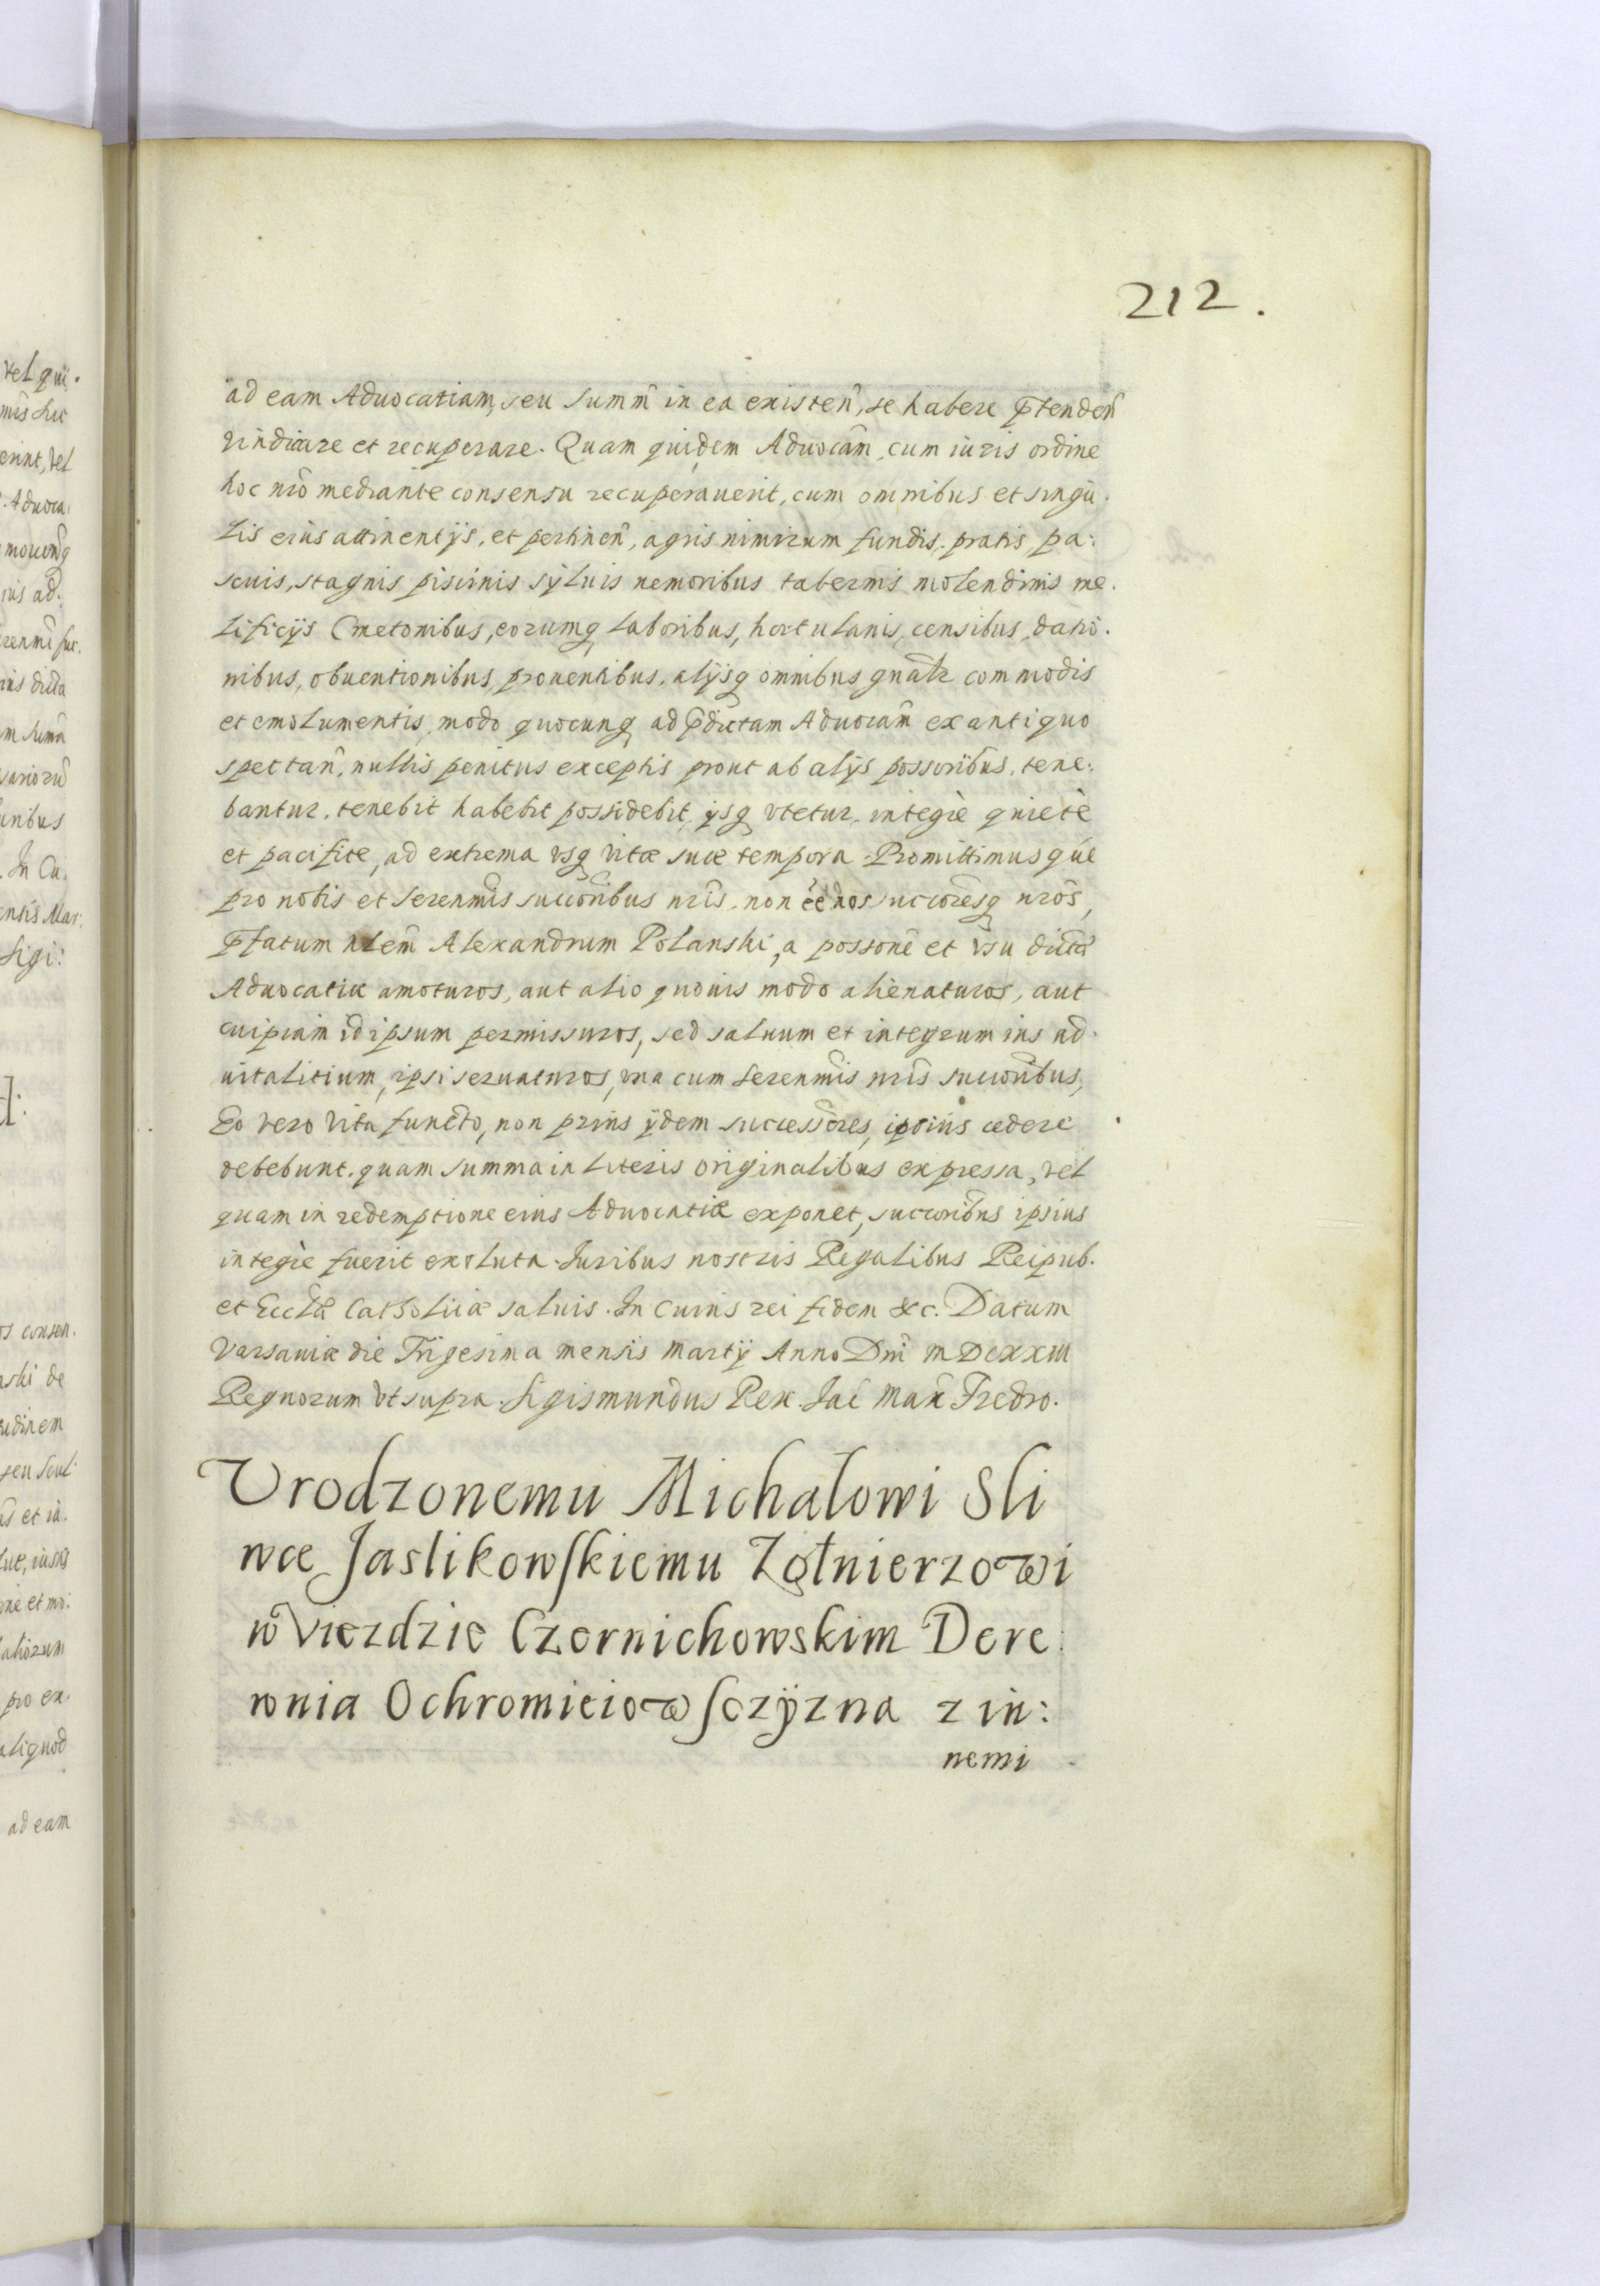 212.
ad eam Aduocatiam, seu summ̃ in ea existeñ, se habere p̃tendeñ
vindicare et recuperare. Quam quidem Aduocãm, cum iuris ordine
hoc nrõ mediante consensu recuperauerit, cum omnibus et singu.
lis eius attinentijs, et pertineñ, agris nimirum fundis, pratis pa:
scuis, stagnis piscinis syluis nemoribus tabernis molendinis me.
lificijs Cmetonibus, eorumq, laboribus, hortulanis, censibus, datio.
nibus, obuentionibus, prouentibus, alijsq omnibus gnãlr commodis
et emolumentis, modo quocunq, ad p̃dictam Aduocãm ex antiquo
spectañ, nullis penitus exceptis prout ab alijs possoribus, tene:
bantur, tenebit habebit possidebit, ijsq vtetur, integrè quietè
et pacificè, ad extrema vsq vitæ suæ tempora. Promittimusqúe
pro nobis et serenmis succoribus nrĩs, non ẽe nos succoresq nrõs,
p̃fatum nlem̃ Alexandrum Polanski, a possonẽ et vsu dictæ
Aduocatiæ amoturos, aut alio quouis modo alienaturos, aut
cuipiam id ipsum permissuros, sed saluum et integrum ius ad
uitalitium, ipsi seruaturos, vna cum serenm̃is nrĩs succoribus,
Eo vero vita functo, non prius ijdem successores, ipsius cedere
debebunt, quam summa in literis originalibus expressa, vel
quam in redemptione eius Aduocatiæ exponet, succoribus ipsius
integrè fuerit exoluta. Iuribus nostris Regalibus Reipub.
et Eccl̃æ Catholicæ saluis. In cuius rei fidem &c. Datum
Varsauiæ die Trigesima mensis Martij Anno Dni MDCXXIII
Regnorum vt supra. Sigismundus Rex. Jac̃ Max̃ Fredro.
Vrodzonemu Michałowi Sli
wce Jaslikowskiemu Zołnierzowi
w Viezdzie Czernichowskim Dere:
wnia Ochromieiowsczÿzna z in:
nemi